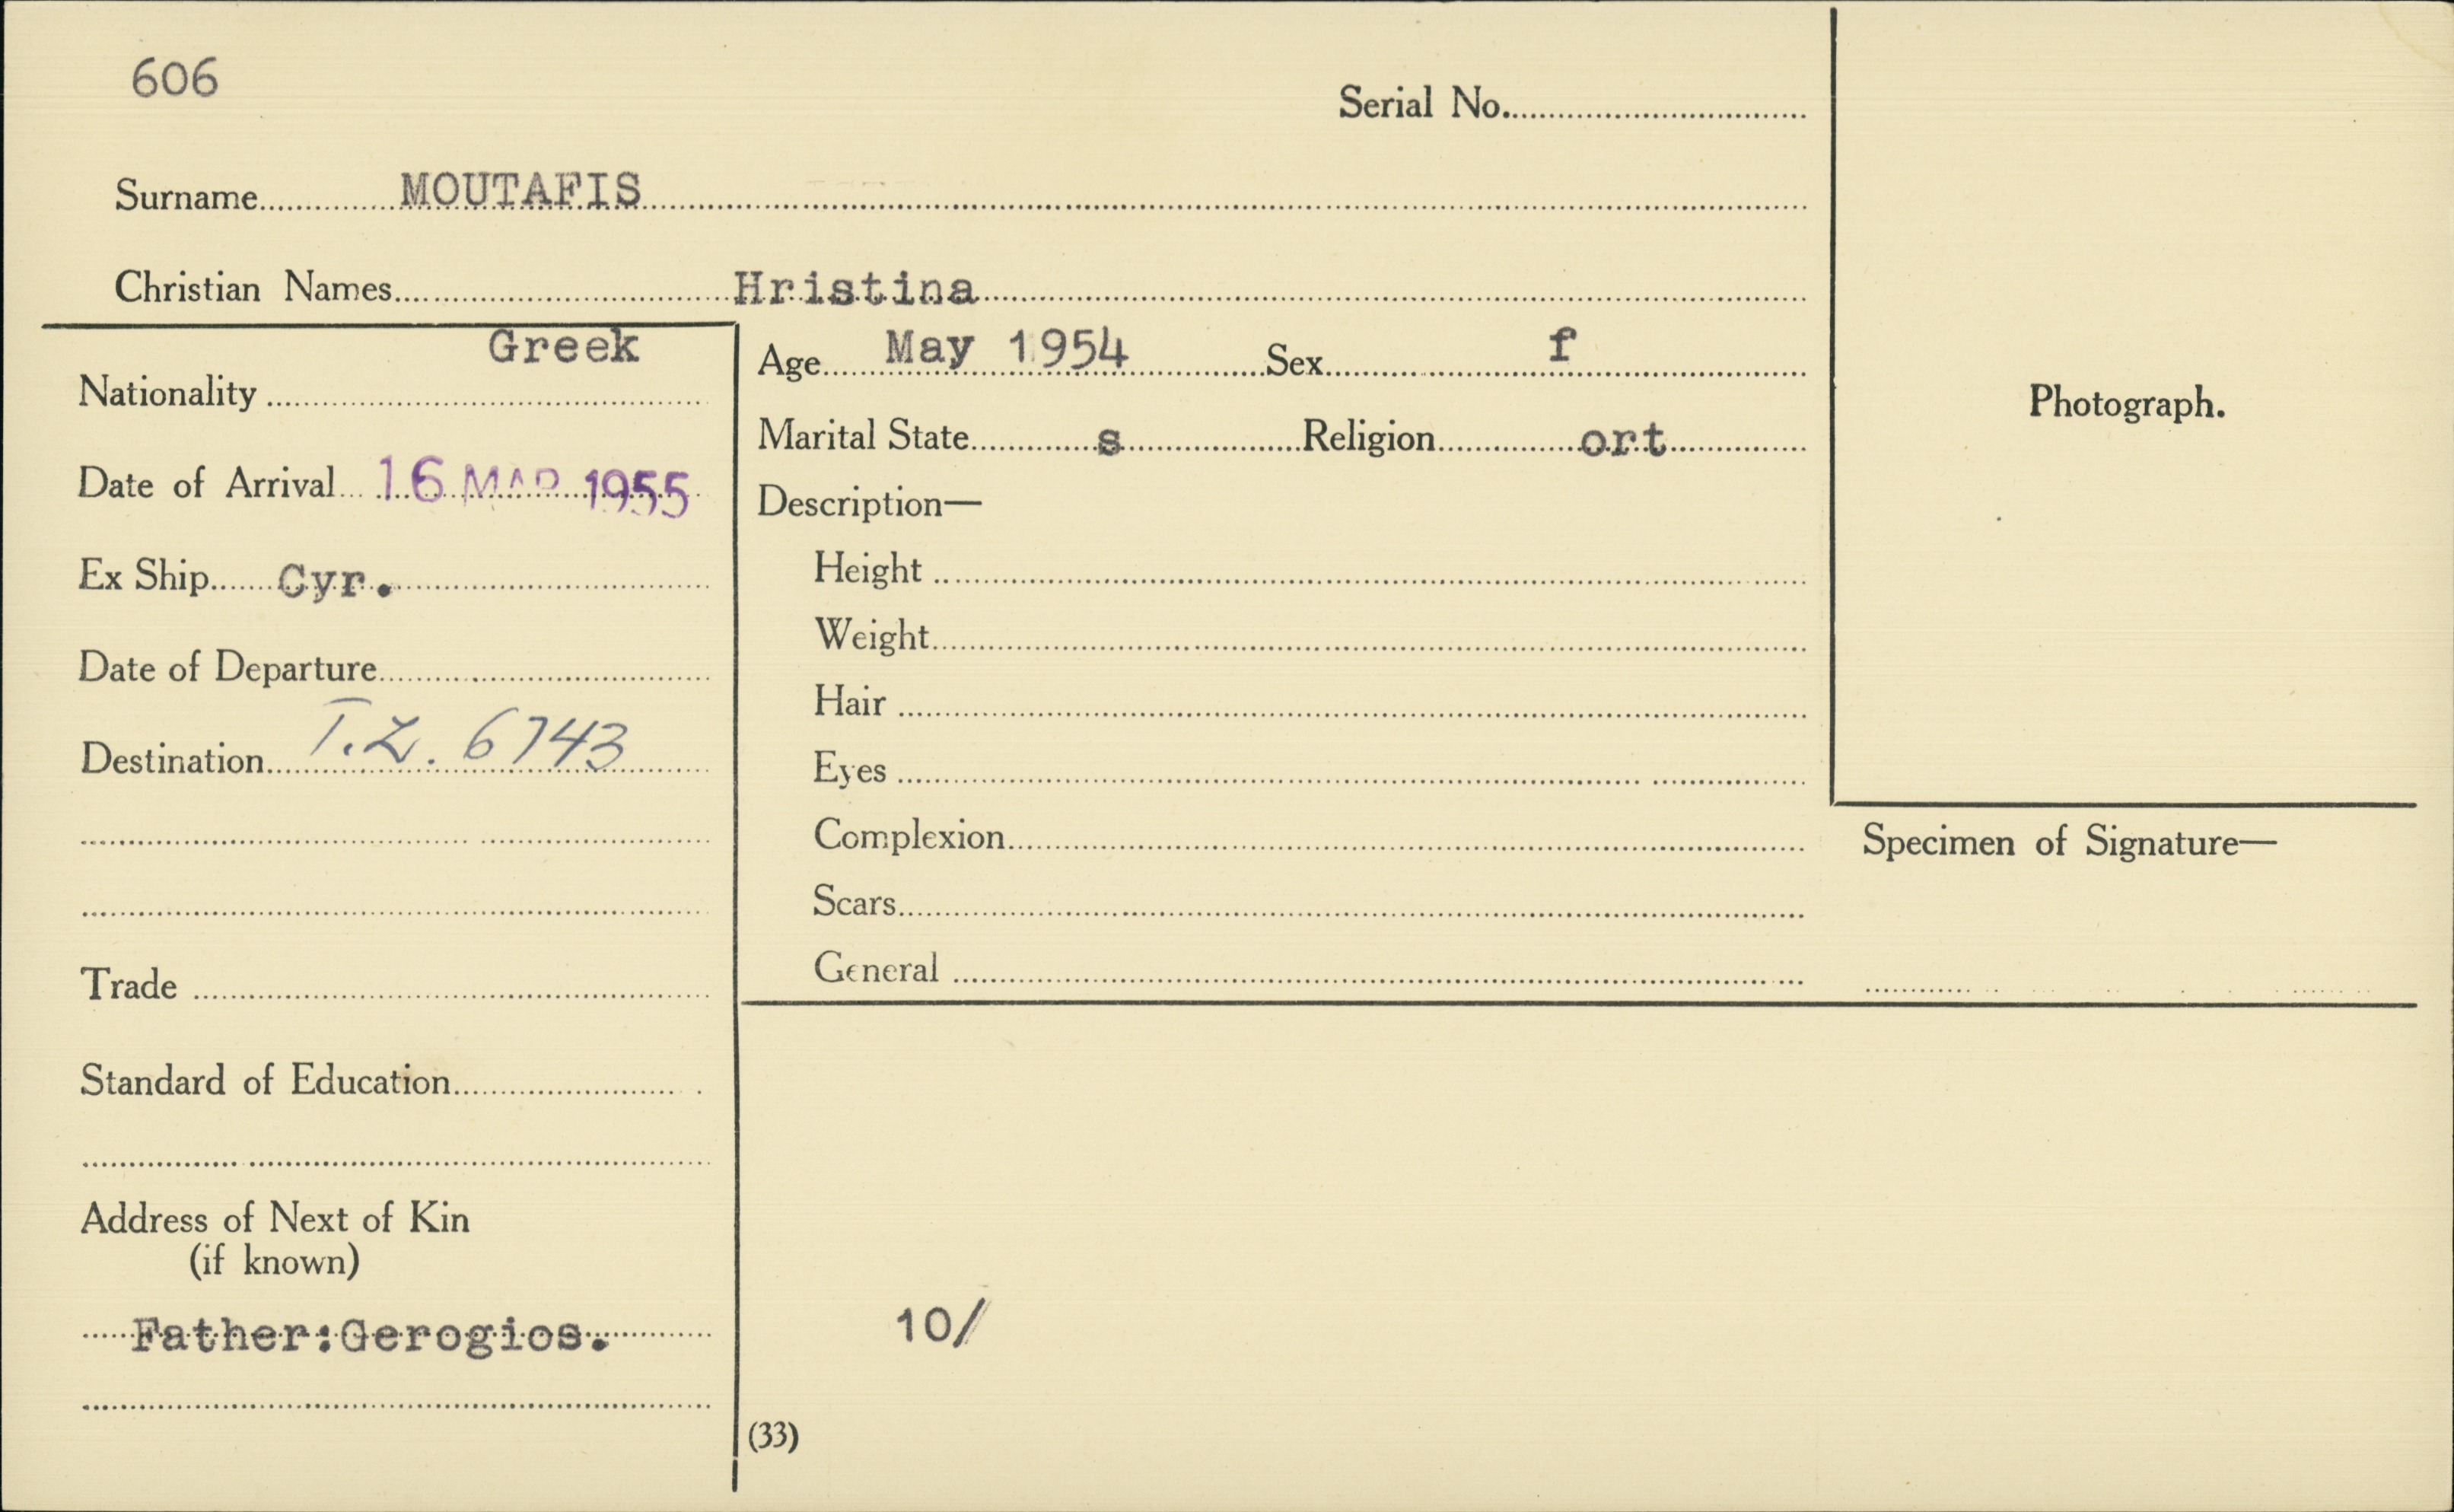 606
Serial No.
Surname MOUTAFIS
Christian Names Hristina
Greek
Nationality
Date of Arrival 16 MAR 1955
Ex Ship Cyr.
Date of Departure
Destination T.Z. 6743
Trade
Standard of Education
Address of Next of Kin
(if known)
Father:Gerogios.
Age May 1954 Sex f
Marital State s Religion ort
Description—
Height
Weight
Hair
Eyes
Complexion
Scars
General
10/
(33)
Photograph.
Specimen of Signature—